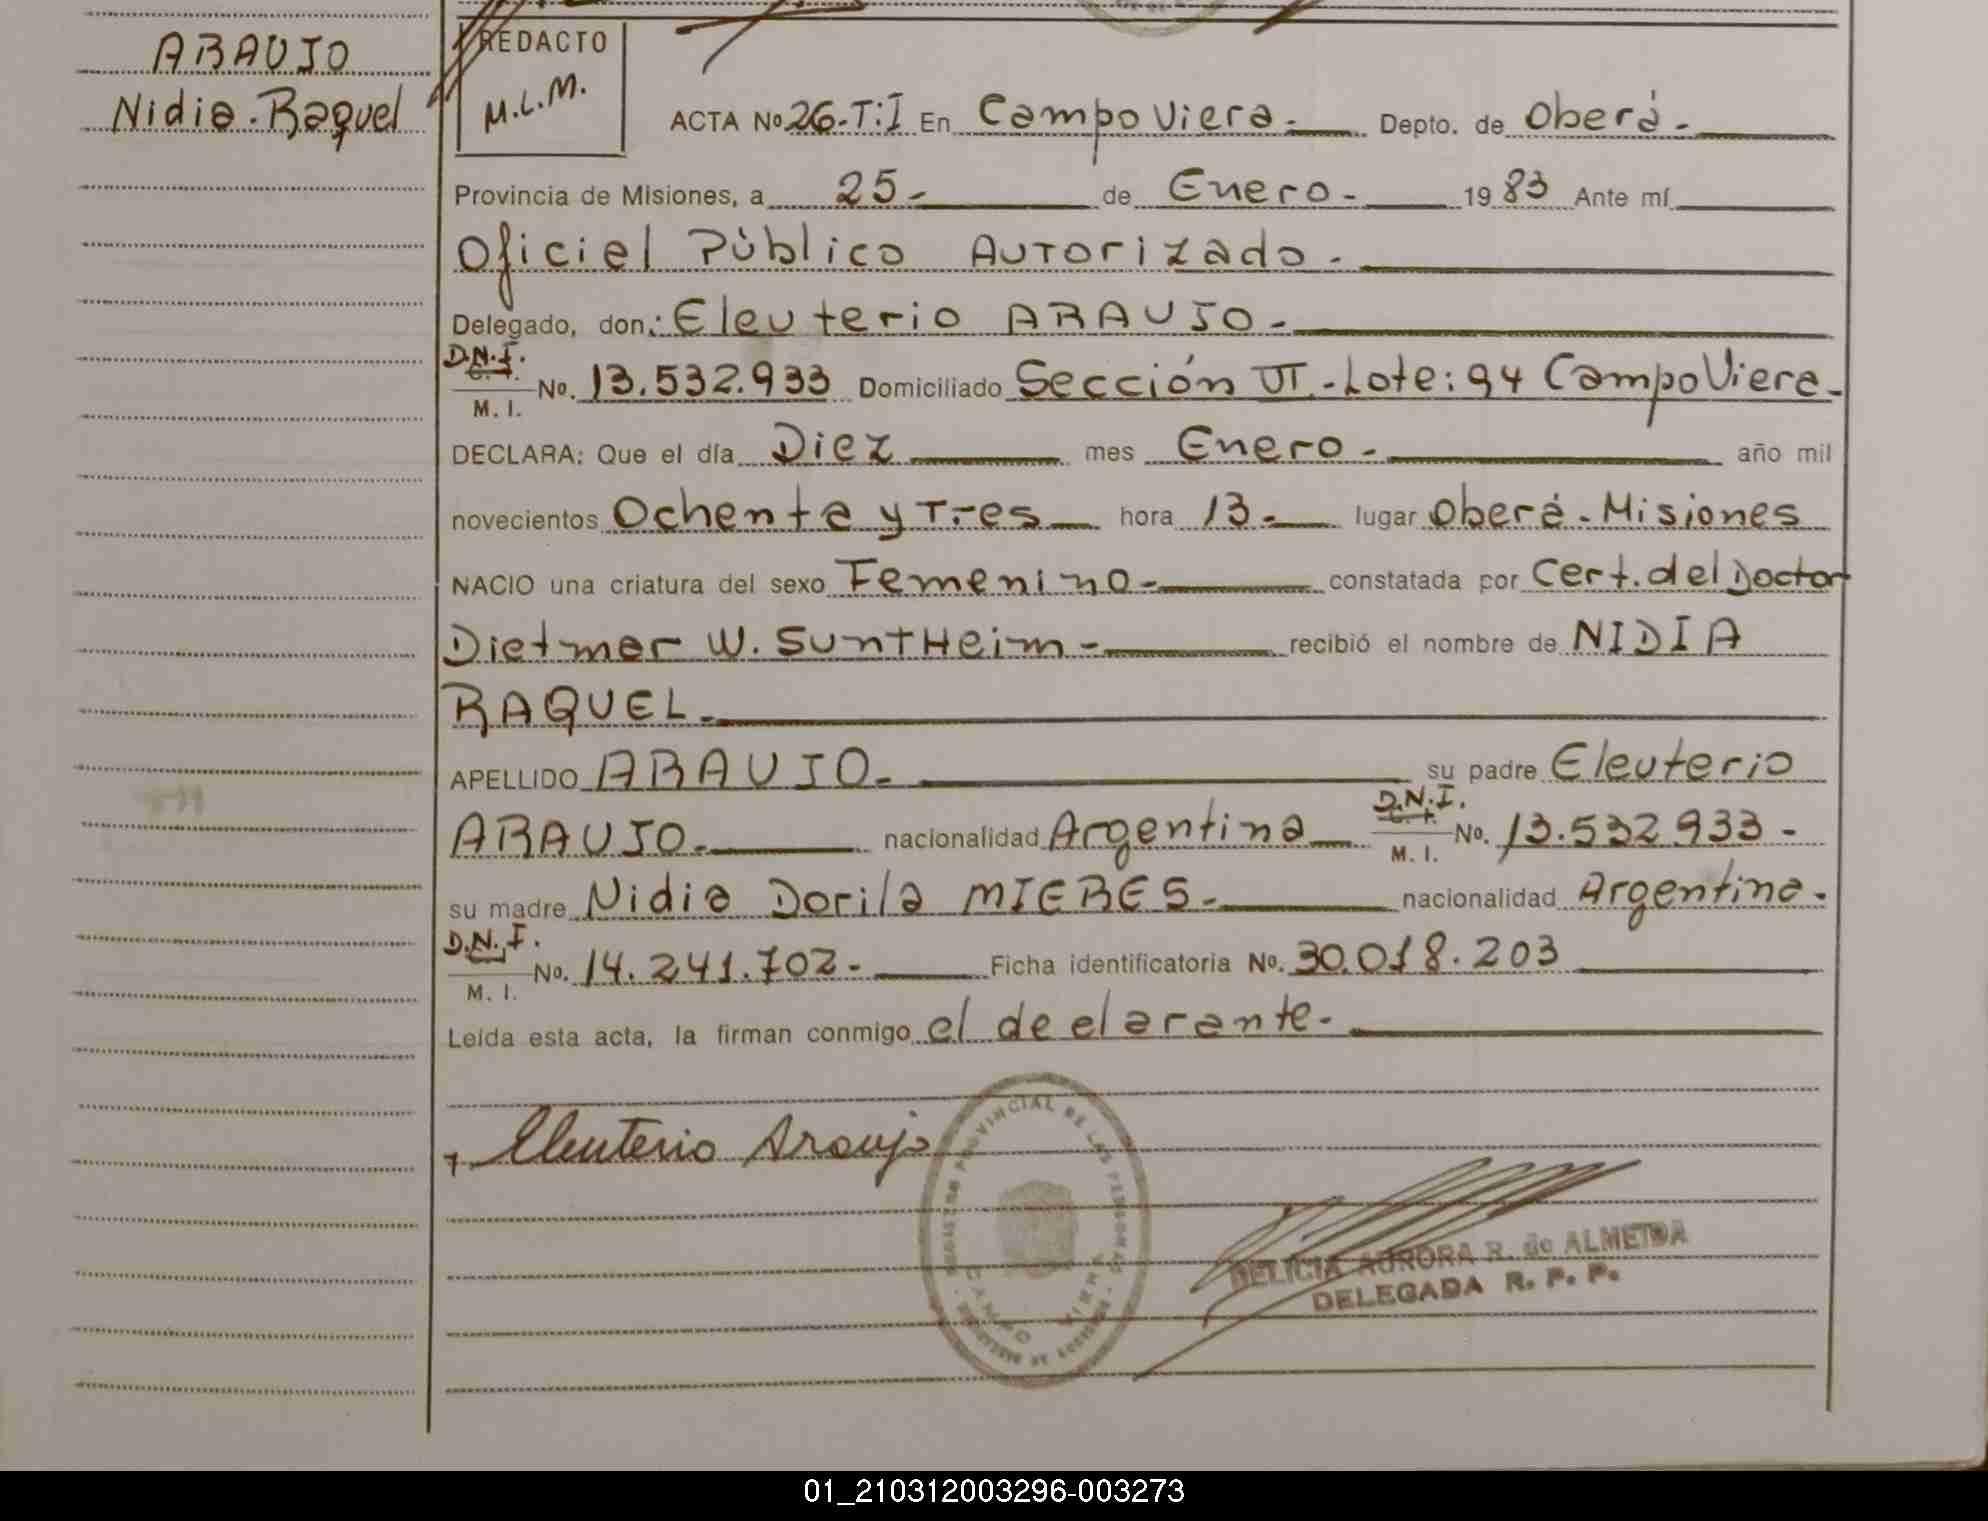 ARAUJO
Nidia.Raquel
REDACTO
M.L.M.
ACTA No 26-T:I En Campo Viera.- Depto. de Oberá.-
Provincia de Misiones, a 25- de Enero- 1983 Ante mí
Oficial Público Autorizado.-
Delegado, don: Eleuterio ARAUJO.-
D.N.I.
M. I. No. 13.532.933 Domiciliado Sección VI.-Lote:94 Campo Viera.-
DECLARA: Que el día Diez mes Enero.- año mil
novecientos Ochenta y Tres hora 13.- lugar Oberá-Misiones
NACIO una criatura del sexo Femenino- constatada por Cert.del Doctor
Dietmar W. SuntHeim- recibió el nombre de NIDIA
RAQUEL.-
APELLIDO ARAUJO.- su padre Eleuterio
ARAUJO.- nacionalidad Argentina D.N.I. M. I. No. 13.532.933-
su madre Nidia Dorila MIERES.- nacionalidad Argentina.-
D.N.I.
M. I. No. 14.241.702.- Ficha identificatoria No. 30.018.203
Leída esta acta, la firman conmigo el declarante.-
Eleuterio Araujo
REGISTRO PROVINCIAL DE LAS PERSONAS
CAMPO VIERA
DELICIA AURORA R. de ALMEIDA
DELEGADA R. P. P.
01_210312003296-003273